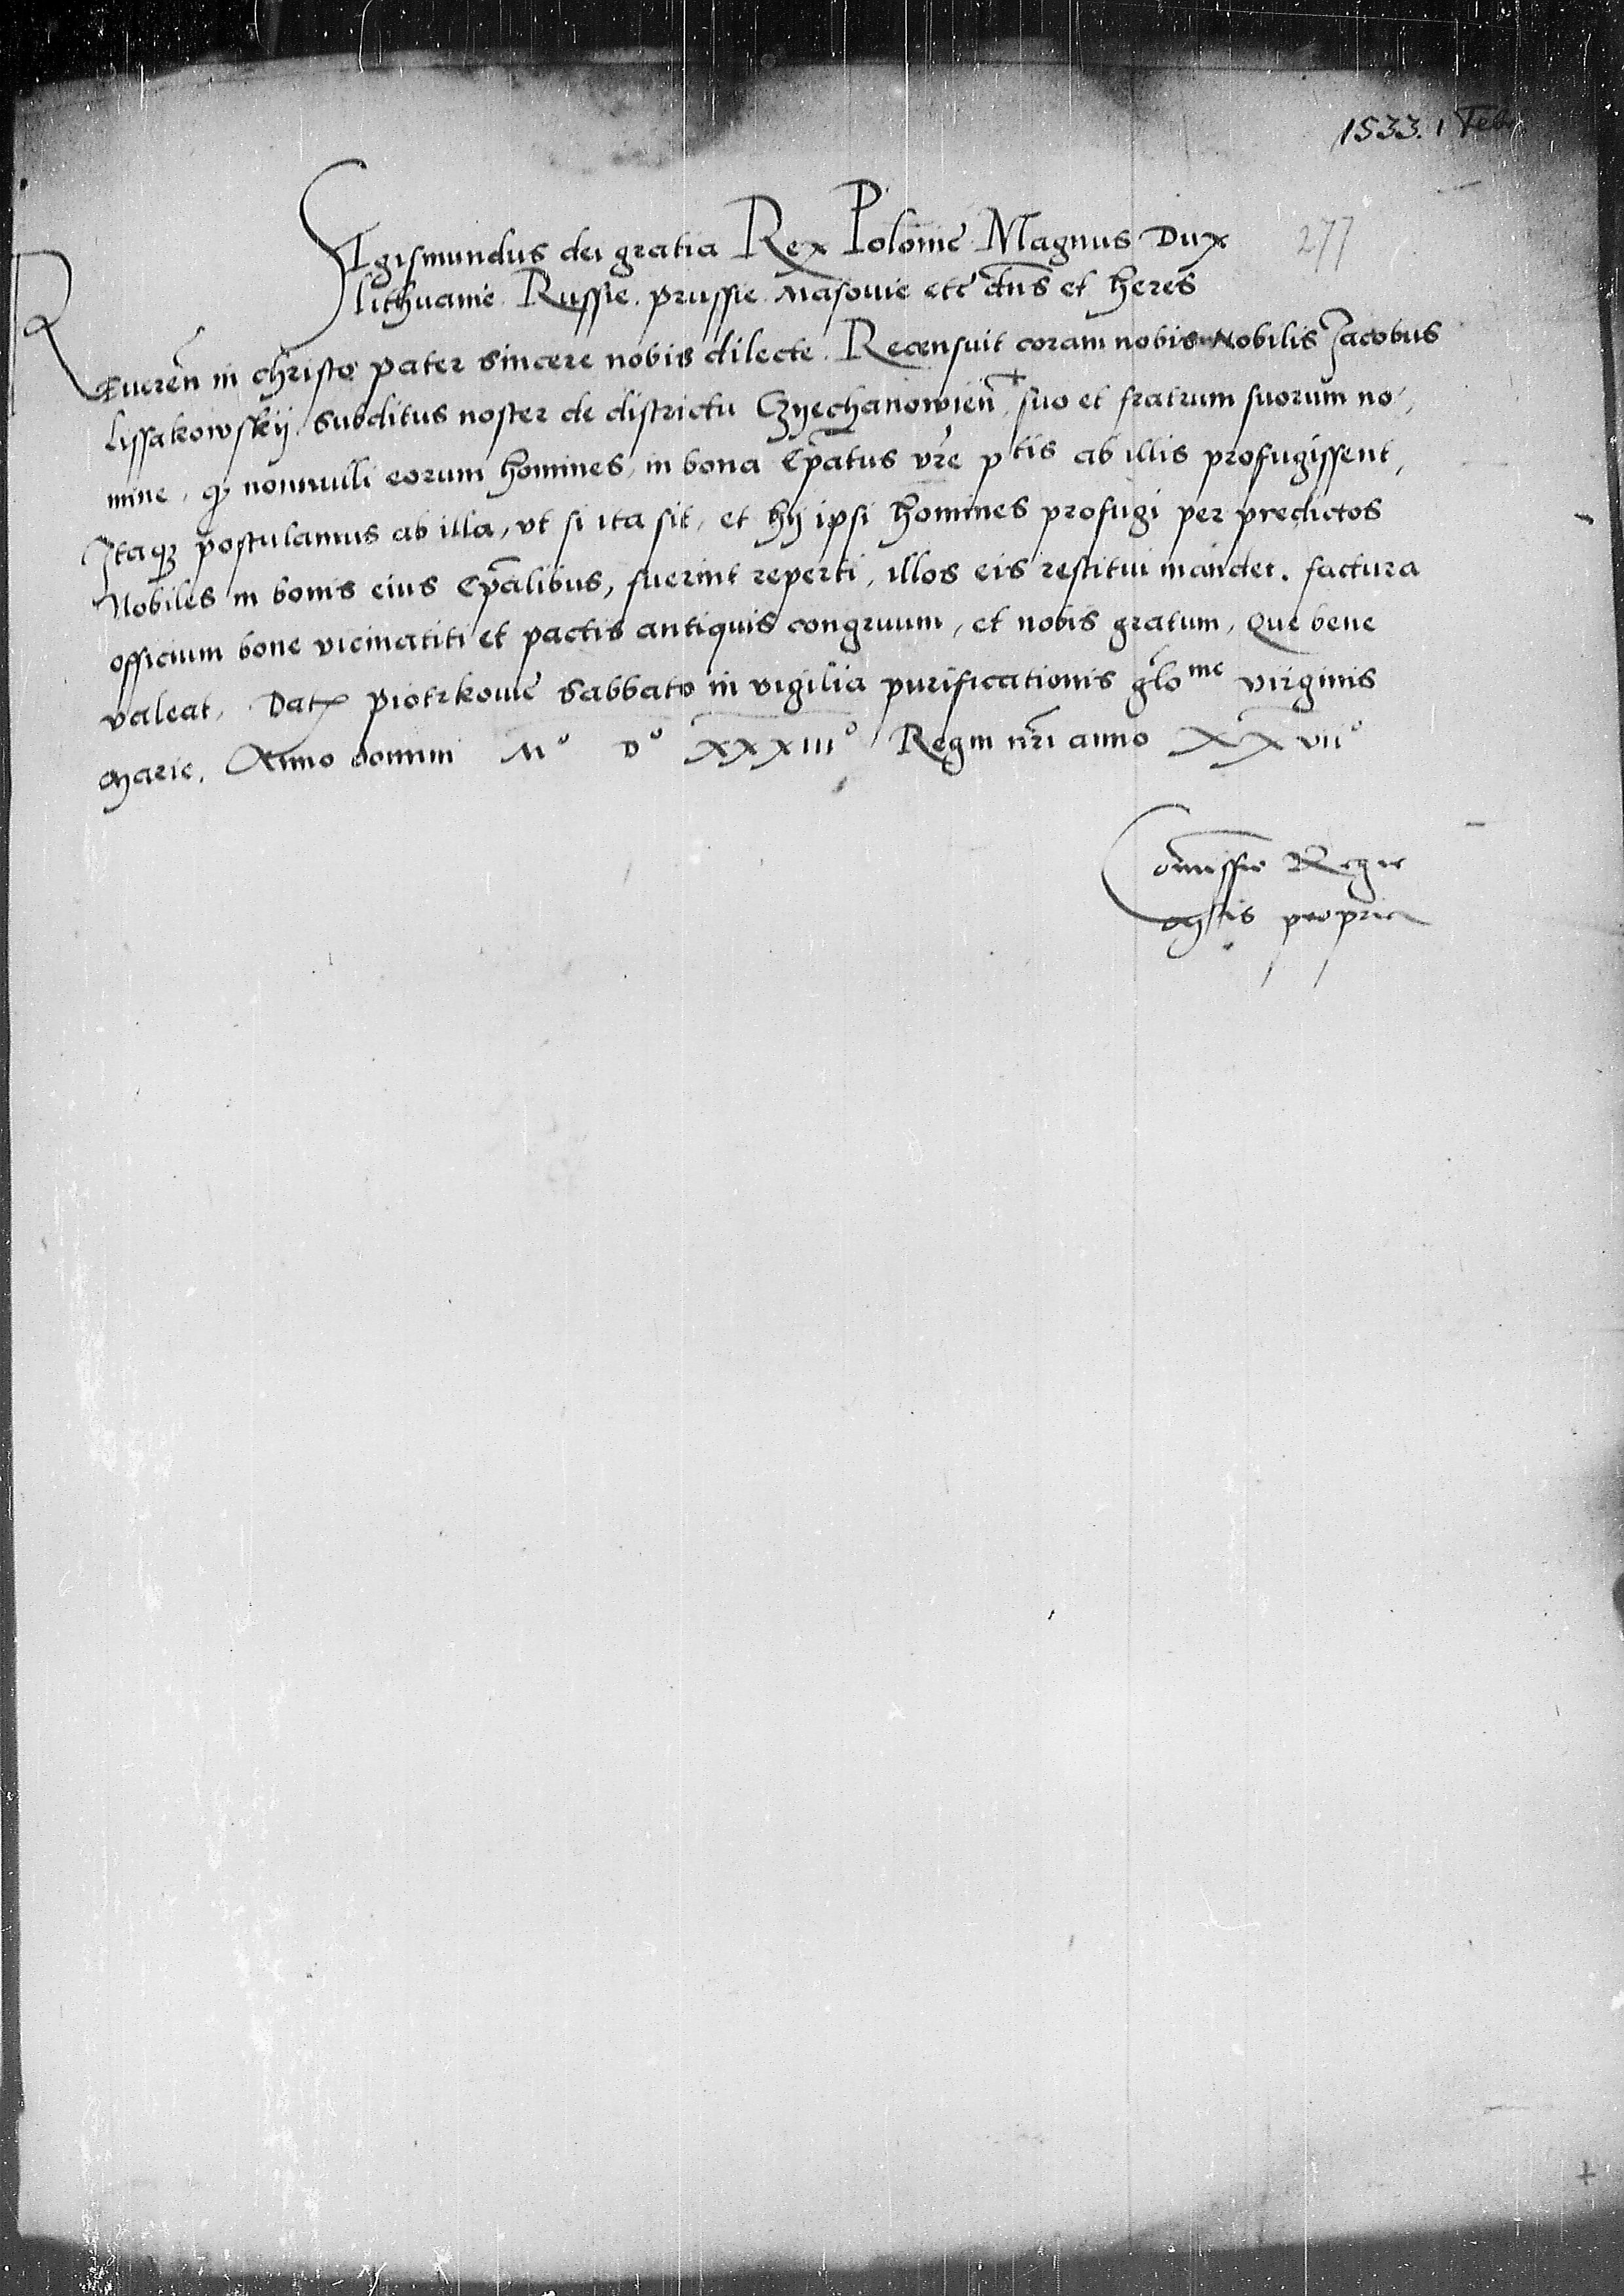 1533. 1 Febr.
277
SIgismundus dei gratia Rex Polonie Magnus Dux
lithuanie. Russie. prussie. Masouie etc̃ dn̄s et heres
REueren̄ in christo pater sincere nobis dilecte. Recensuit coram nobis Nobilis Jacobus
Lissakowskij subditus noster de districtu Czyechanowien̄ suo et fratrum suorum no-
mine, q nonnulli eorum homines, in bona Ep̄atus vr̄e ptis ab illis profugissent,
Itaqꝫ postulamus ab illa, vt si ita sit, et hij ipsi homines profugi per predictos
Nobiles in bonis eius Ep̄alibus, fuerint reperti, illos eis restitui mandet. factura
officium bone vicinatiti et pactis antiquis congruum, et nobis gratum, Que bene
valeat, Datꝫ Piotrkouie Sabbato in vigilia purificationis glo͞me virginis
Marie. Anno domini M° D° XXXIII° Regni nr̄i anno XXVII°
Com̄issio Regie
M̄tis propria